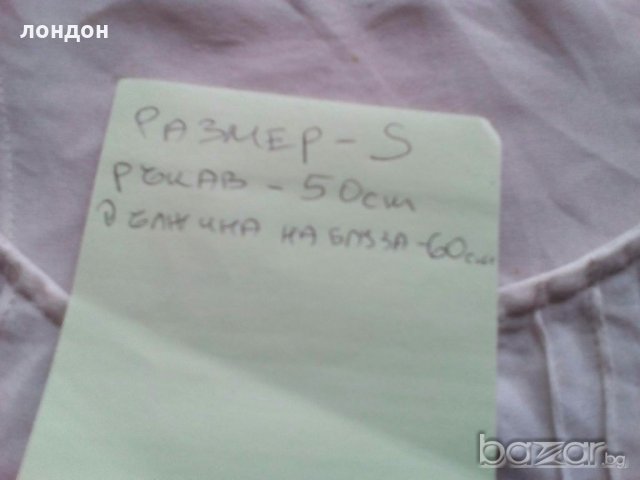 лондон
РАЗМЕР - S
РЪКАВ - 50 cm
ДЪЛЖИНА НА БЛУЗА - 60 см
bazar.bg